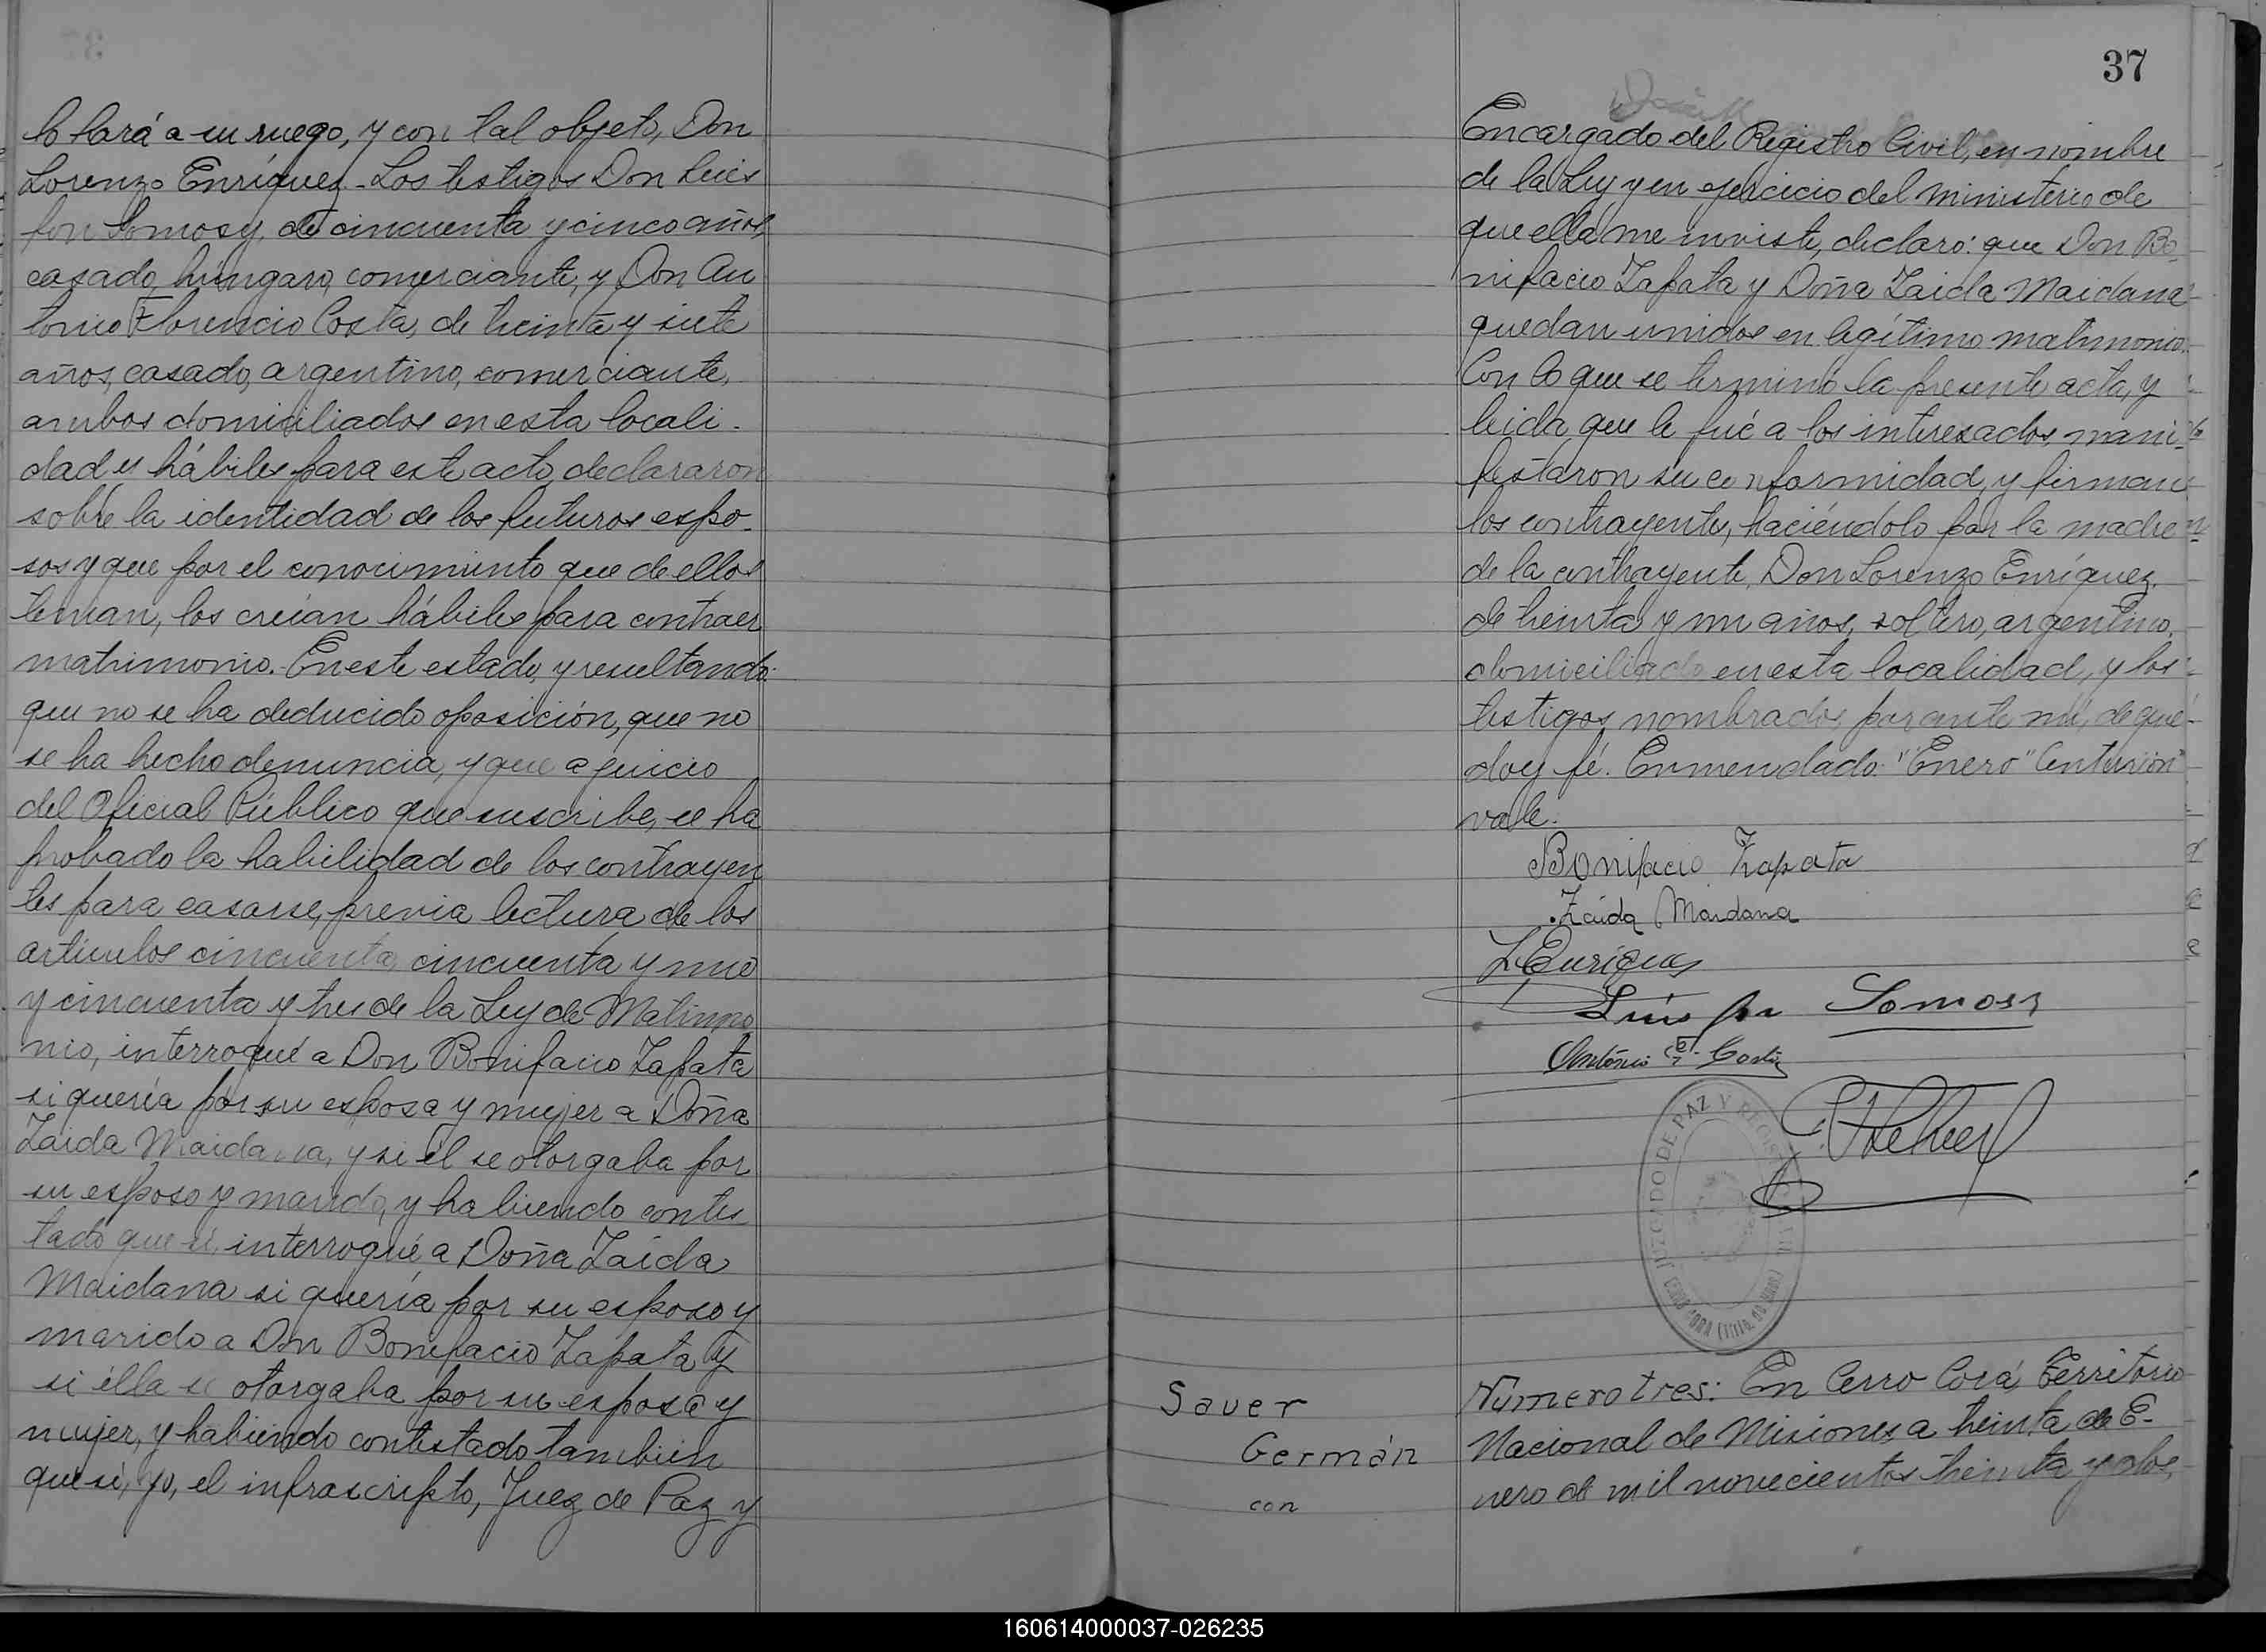 lo hará a su ruego, y con tal objeto, Don
Lorenzo Enríquez.- Los testigos Don Luis
fon Somosy, de cincuenta y cinco años,
casado, húngaro, comerciante, y Don An
tonio Florencio Costa, de treinta y siete
años, casado, argentino, comerciante,
ambos domiciliados en esta locali-
dad y hábiles para este acto, declararon
sobre la identidad de los futuros espo-
sos y que por el conocimiento que de ellos
tenían, los creían hábiles para contraer
matrimonio.- En este estado, y resultando:
que no se ha deducido oposición, que no
se ha hecho denuncia, y que a juicio
del Oficial Público que suscribe, se ha
probado la habilidad de los contrayen
tes para casarse, previa lectura de los
artículos cincuenta, cincuenta y uno
y cincuenta y tres de la Ley de Matrimo
nio, interrogué a Don Bonifacio Zapata
si quería por su esposa y mujer a Doña
Zaida Maidana, y si él se otorgaba por
su esposo y marido, y habiendo contes
tado que sí, interrogué a Doña Zaida
Maidana si quería por su esposo y
marido a Don Bonifacio Zapata y
si élla se otorgaba por su esposa y
mujer, y habiendo contestado también
que sí, yo, el infrascripto, Juez de Paz y
37
Encargado del Registro Civil, en nombre
de la Ley y en ejercicio del ministerio de
que ella me inviste, declaro: que Don Bo-
nifacio Zapata y Doña Zaida Maidana
quedan unidos en legítimo matrimonio.
Con lo que se terminó la presente acta, y
leida que le fué a los interesados, mani-
festaron su conformidad, y firman
los contrayentes, haciéndolo por la madre
de la contrayente, Don Lorenzo Enríquez,
de treinta y un años, soltero, argentino,
domiciliado en esta localidad, y los
testigos nombrados, por ante mí, de que
doy fé. Enmendado: "Enero" Centurión"
vale.
Bonifacio Zapata
Zaida Maidana
L Enriquez
Luis fon Somosy
Antonio F. Costa
JUZGADO DE PAZ Y REGISTRO CIVIL
CERRO CORA (Territ. de Misiones)
Saver
Germán
con
Número tres: En Cerro Corá, Territorio
Nacional de Misiones, a treinta de E-
nero de mil novecientos treinta y dos,
160614000037-026235